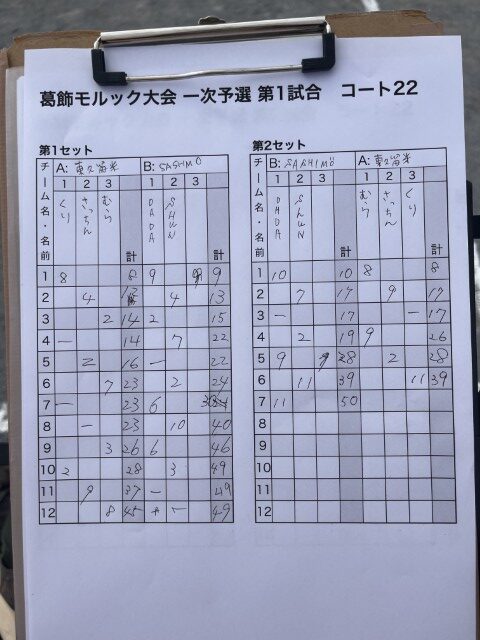 葛飾モルック大会 一次予選 第1試合 コート22
第1セット
チーム名・名前 A: 東久留米 B: SASHIMO
1 2 3 1 2 3
くり さっちん むら 計 DADA SHUN 計
1 8 8 9 9
2 4 12 4 13
3 2 14 2 15
4 — 14 7 22
5 2 16 — 22
6 7 23 2 24
7 — 23 6
8 — 23 10 40
9 3 26 6 46
10 2 28 3 49
11 9 37 — 49
12 8 45 — 49
第2セット
チーム名・名前 B: SASHIMO A: 東久留米
1 2 3 1 2 3
DADA SHUN 計 むら さっちん くり 計
1 10 10 8 8
2 7 17 9 17
3 — 17 — 17
4 2 19 9 26
5 9 28 2 28
6 11 39 11 39
7 11 50
8
9
10
11
12